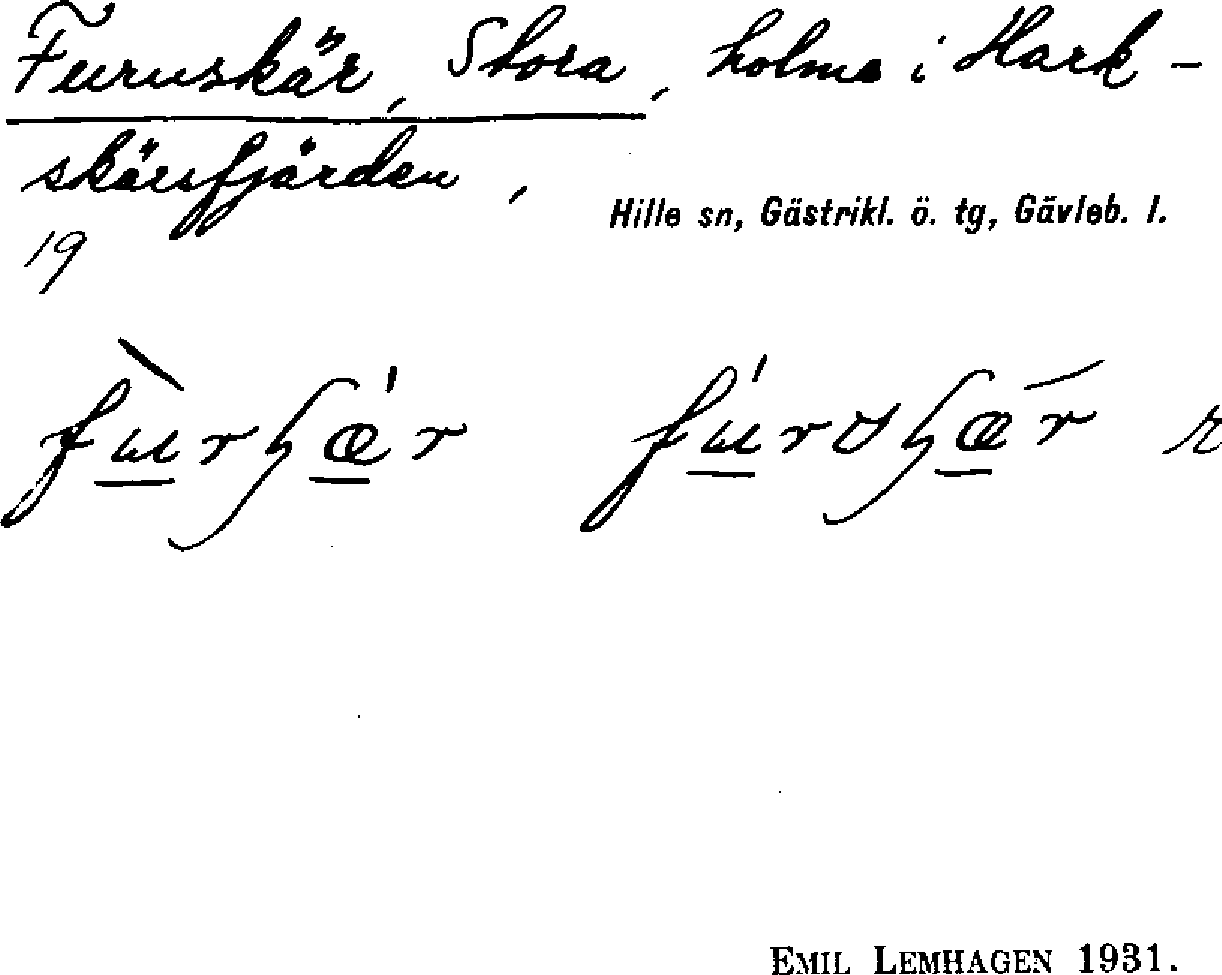 Furuskär, Stora, holme i Hark-
skärsfjärden,
Hille sn, Gästrikl. ö. tg, Gävleb. l.
19
EMIL LEMHAGEN 1931.